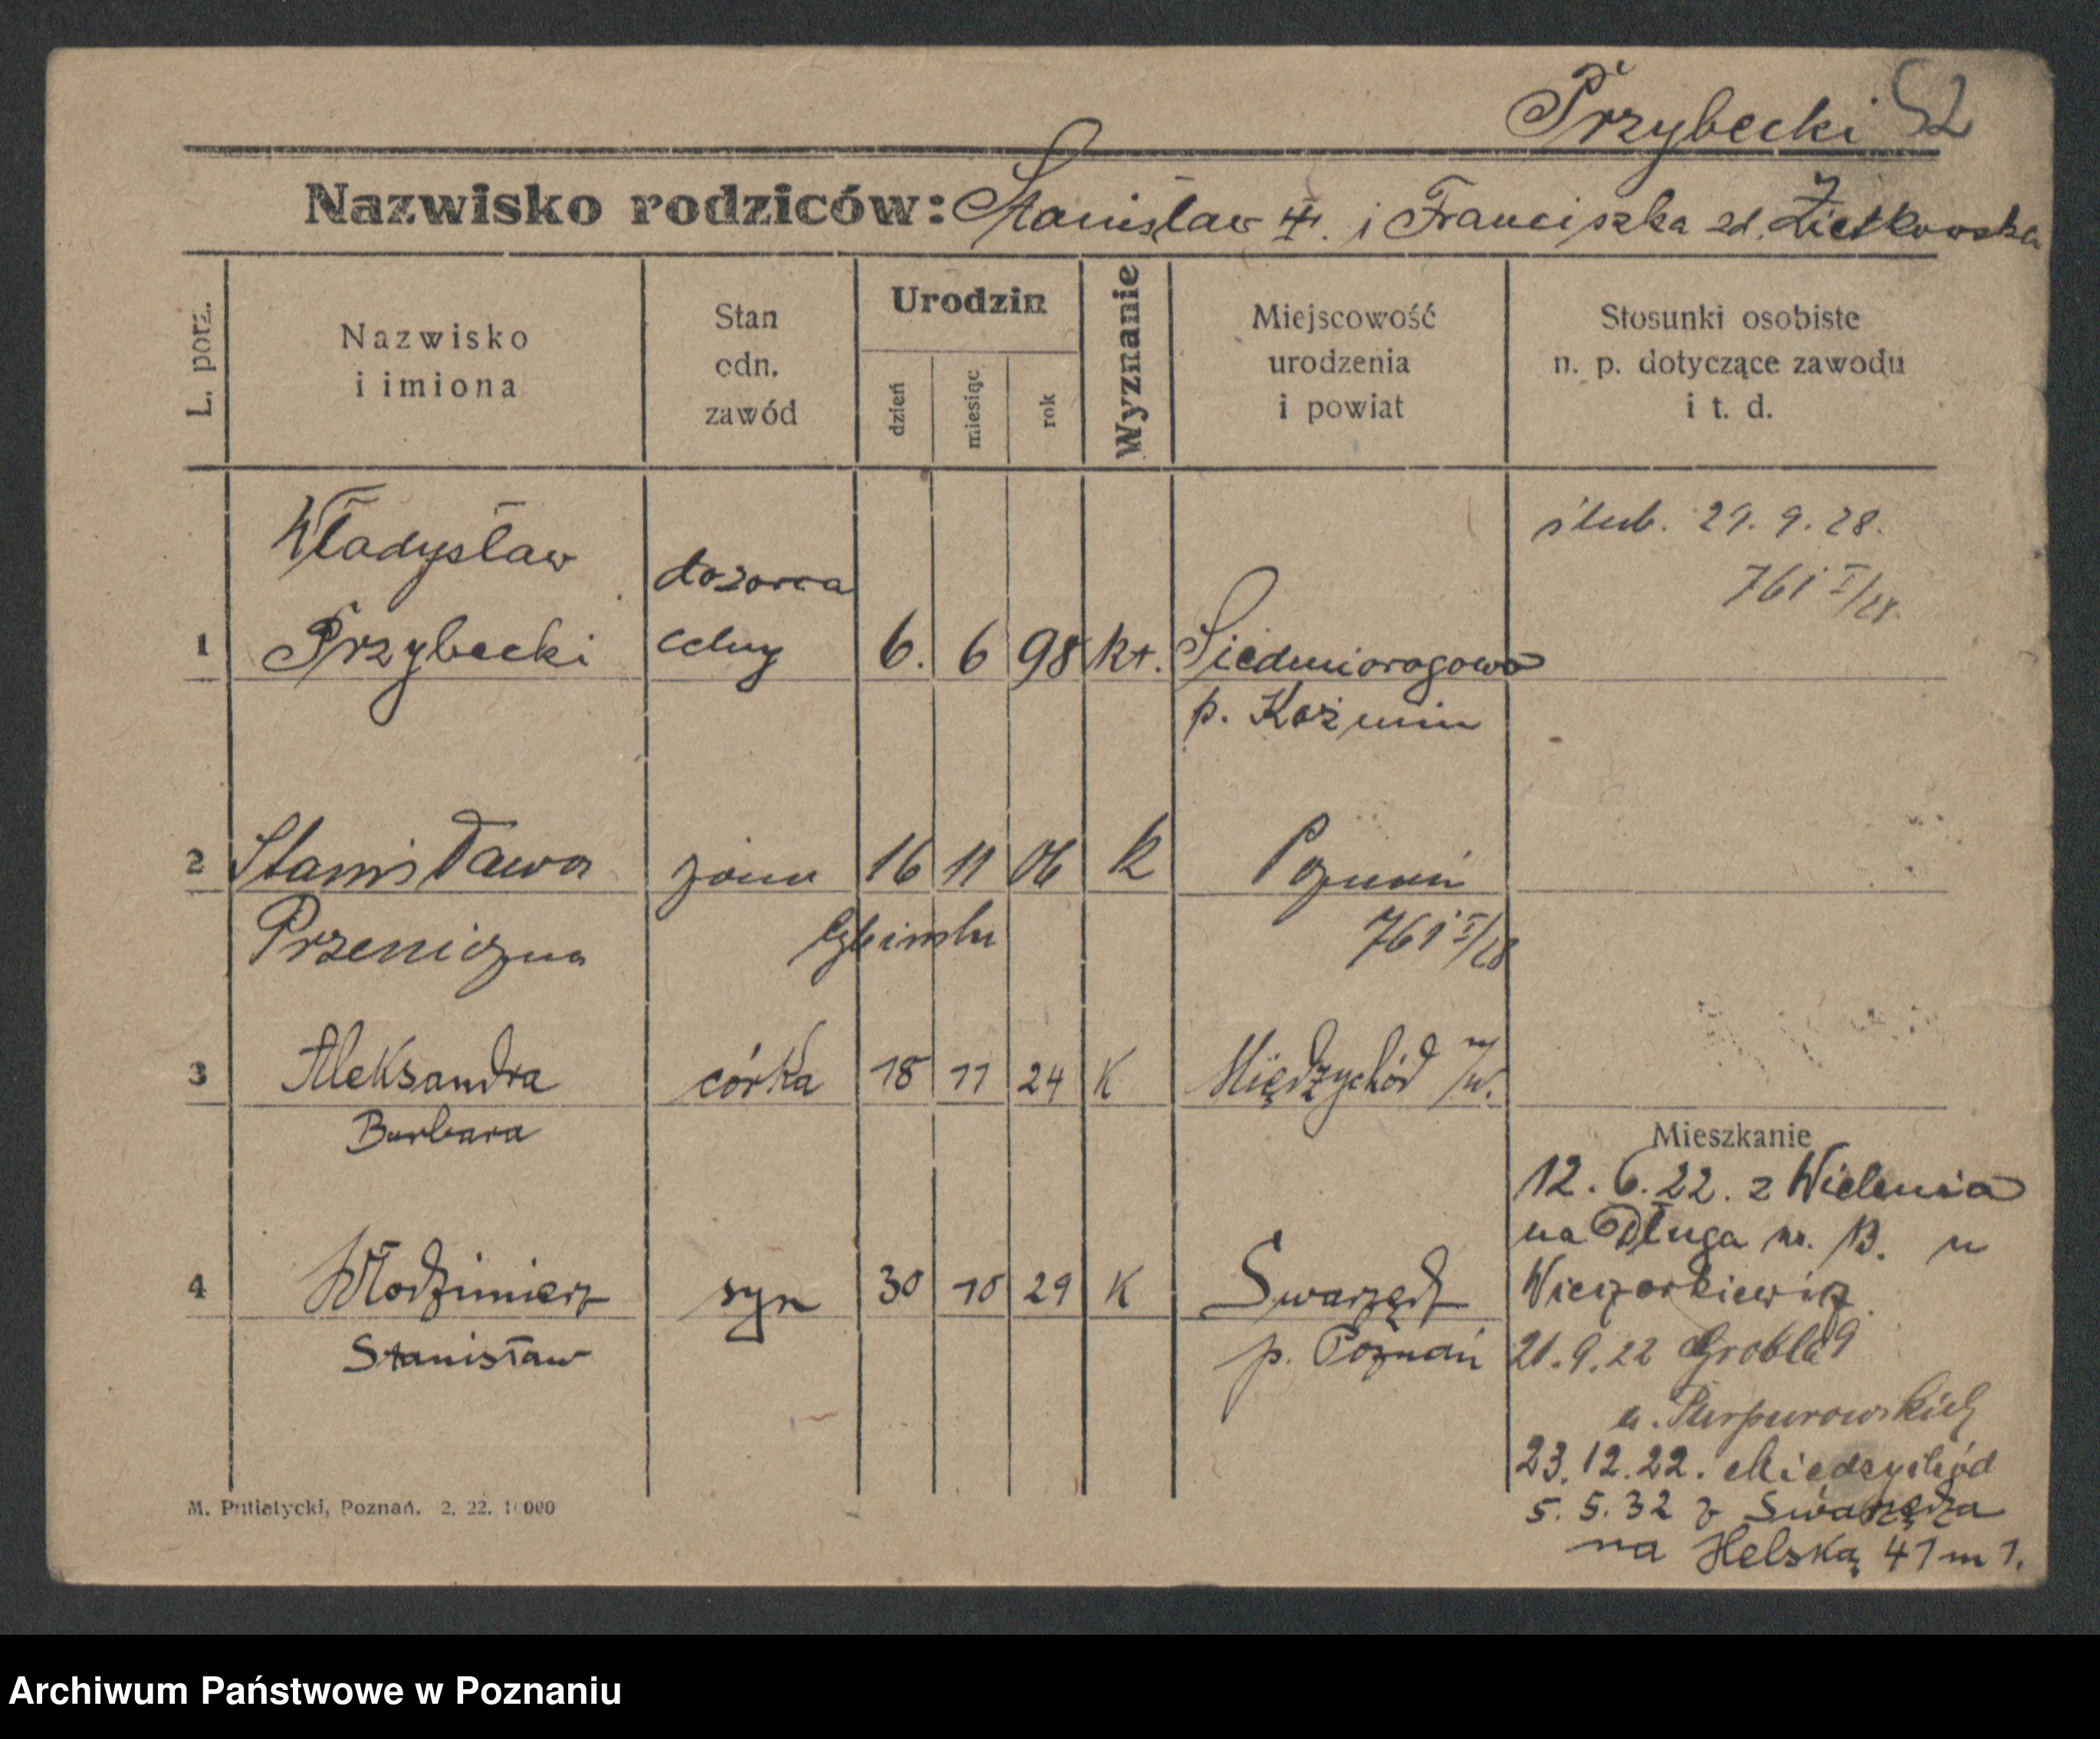 Przybecki 52
Nazwisko rodziców: Stanisław i Franciszka zd. Ziętkowska
L. porz.
Nazwisko
i imiona
Stan
odn.
zawód
Urodzin
dzień
miesiąc
rok
Wyznanie
Miejscowość
urodzenia
i powiat
Stosunki osobiste
n. p. dotyczące zawodu
i t. d.
ślub. 29. 9. 28.
761 I/28.
Władysław
dozorca
1 Przybecki celny 6. 6 98 kt. Siedmiorogowo
p. Koźmin
2 Stanisława żona 16 11 06 k Poznań
Przeniczna 761 I/28
3 Aleksandra córka 18 11 24 K Międzychód n/W.
Barbara
4 Włodzimierz syn 30 10 29 K Swarzędz
Stanisław p. Poznań
Mieszkanie
12. 6. 22. z Wielenia
na Długa nr. 13. u
Wieczorkiewicz
21. 9. 22 Grobla 9
u. Purpurowskich
23. 12. 22. Międzychód
5. 5. 32 z Swarzędza
na Helską 41 m 1.
M. Putiatycki, Poznań. 2. 22. 10 000
Archiwum Państwowe w Poznaniu